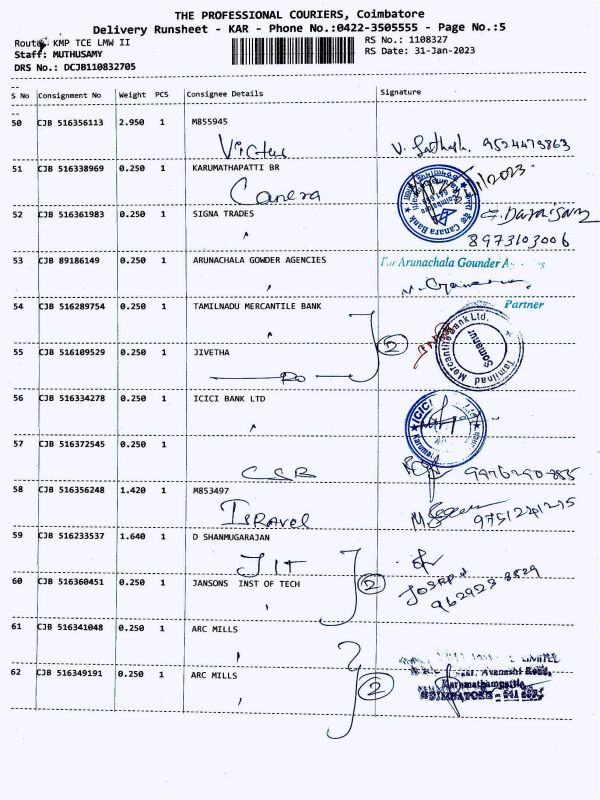 THE PROFESSIONAL COURIERS, Coimbatore
Delivery Runsheet - KAR - Phone No.:0422-3505555 - Page No.:5
Route: KMP TCE LMW II
RS No.: 1108327
Staff: MUTHUSAMY
RS Date: 31-Jan-2023
DRS No.: DCJB110832705
S No Consignment No Weight PCS Consignee Details Signature
50 CJB 516356113 2.950 1 M855945
Victus V. Sathesh. 9524479863
51 CJB 516338969 0.250 1 KARUMATHAPATTI BR
Canera
52 CJB 516361983 0.250 1 SIGNA TRADES
Canara Bank
8973103006
53 CJB 89186149 0.250 1 ARUNACHALA GOWDER AGENCIES
For Arunachala Gounder
Partner
54 CJB 516289754 0.250 1 TAMILNADU MERCANTILE BANK
2
Tamilnad Mercantile Bank Ltd.
Somanur
55 CJB 516109529 0.250 1 JIVETHA
Do
56 CJB 516334278 0.250 1 ICICI BANK LTD
ICICI
57 CJB 516372545 0.250 1
CSR 9976290855
58 CJB 516356248 1.420 1 M853497
Isravel 9751241215
59 CJB 516233537 1.640 1 D SHANMUGARAJAN
JIT
60 CJB 516360451 0.250 1 JANSONS INST OF TECH
2
JOSEPH
962923 8529
61 CJB 516341048 0.250 1 ARC MILLS
LIMITED
62 CJB 516349191 0.250 1 ARC MILLS
2
Avanashi Road,
Karumathampatti,
COIMBATORE - 641 659.